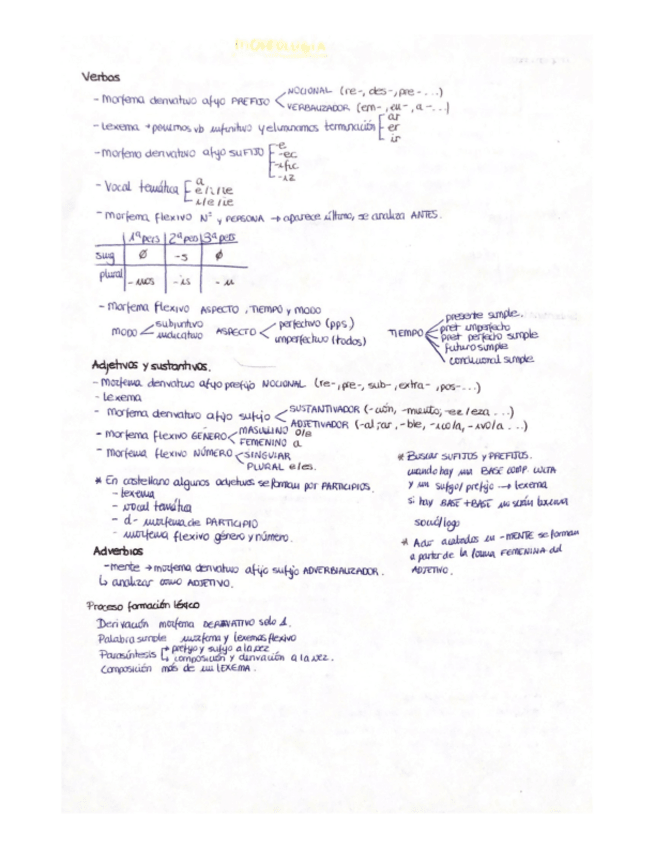 MORFOLOGÍA
Verbos
- Morfema derivativo afijo PREFIJO < NOCIONAL (re-, des-, pre-...)
VERBALIZADOR (em-, en-, a-...)
- Lexema → ponemos vb infinitivo y eliminamos terminación [ ar
er
ir
- morfema derivativo afijo SUFIJO [ -e
-ec
-ific
-iz
- Vocal temática [ a
e/i/ie
i/e/ie
- morfema flexivo Nº y PERSONA → aparece último, se analiza ANTES.
1ª pers 2ª pers 3ª pers
sing ∅ -s ∅
plural -mos -is -n
- Morfema flexivo ASPECTO, TIEMPO y MODO
MODO < subjuntivo
indicativo
ASPECTO < perfectivo (pps)
imperfectivo (todos)
TIEMPO < presente simple.
pret imperfecto
pret perfecto simple
futuro simple
condicional simple
Adjetivos y sustantivos.
- Morfema derivativo afijo prefijo NOCIONAL (re-, pre-, sub-, extra-, pos-...)
- Lexema
- Morfema derivativo afijo sufijo < SUSTANTIVADOR (-ción, -miento, -ez/eza ...)
ADJETIVADOR (-al, ar, -ble, -ico/a, -ivo/a ...)
- Morfema flexivo GÉNERO < MASCULINO o/e
FEMENINO a
- Morfema flexivo NÚMERO < SINGULAR
PLURAL e/es.
* En castellano algunos adjetivos se forman por PARTICIPIOS.
- lexema
- vocal temática
- d - morfema de PARTICIPIO
- morfema flexivo género y número.
* Buscar SUFIJOS y PREFIJOS.
cuando hay una BASE COMP. CULTA
y un sufijo/prefijo → lexema
si hay BASE + BASE
soció/logo
* Adv acabados en -MENTE se forman
a partir de la forma FEMENINA del
ADJETIVO.
Adverbios
-mente → morfema derivativo afijo sufijo ADVERBIALIZADOR.
↳ analizar como ADJETIVO.
Proceso formación léxico
Derivación morfema DERIVATIVO solo 1.
Palabra simple morfema y lexemas flexivo
Parasíntesis [→ prefijo y sufijo a la vez
→ composición y derivación a la vez.
Composición más de un LEXEMA.